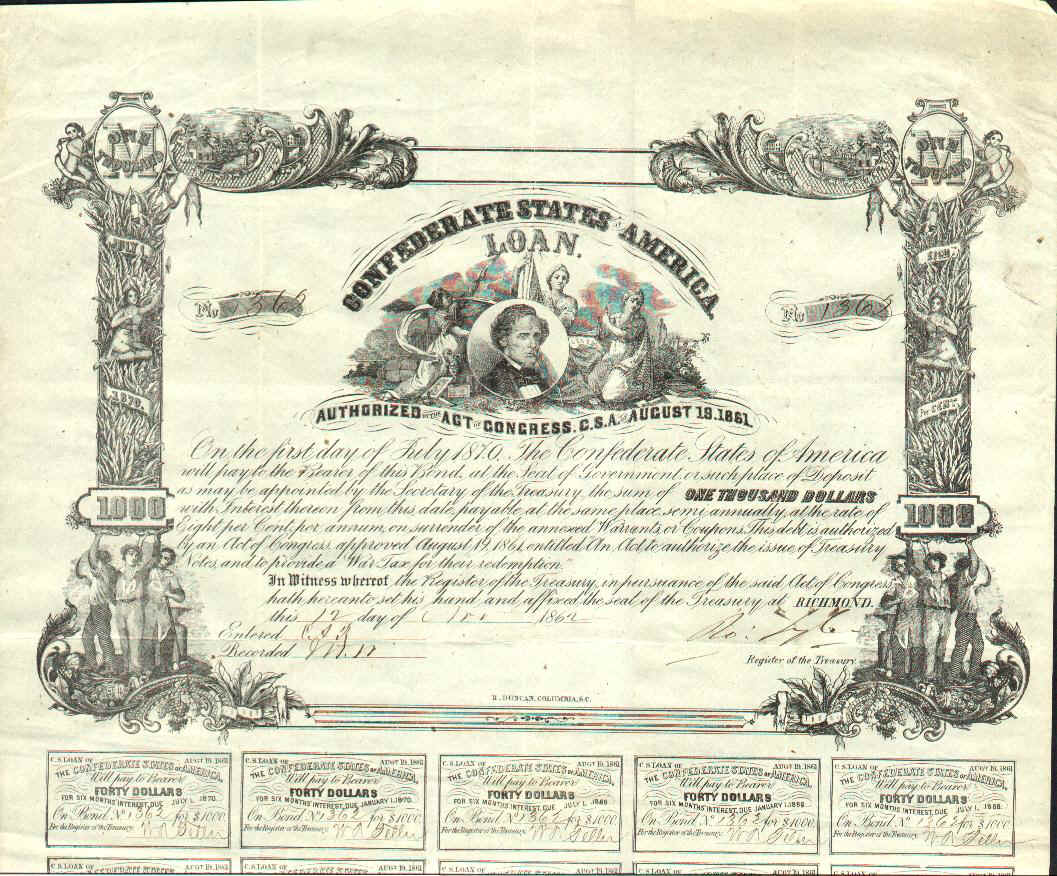 ONE THOUSAND
M
ONE THOUSAND
M
CONFEDERATE STATES OF AMERICA
LOAN.
JULY 1
EIGHT
No 1362
No 1362
1870.
PER CENT
AUTHORIZED BY THE ACT OF CONGRESS, C.S.A. OF AUGUST 19.1861.
On the first day of July 1870, The Confederate States of America
will pay to the Bearer of this Bond, at the Seat of Government, or such place of Deposit
as may be appointed by the Secretary of the Treasury, the sum of ONE THOUSAND DOLLARS
1000
1000
with Interest thereon from this date, payable at the same place semi annually, at the rate of
Eight per Cent, per annum, on surrender of the annexed Warrants or Coupons. This debt is authorized
by an Act of Congress approved August 19, 1861, entitled "An Act to authorize the issue of Treasury
Notes, and to provide a War Tax for their redemption"
In Witness whereof the Register of the Treasury, in pursuance of the said Act of Congress
hath hereunto set his hand, and affixed the seal of the Treasury at RICHMOND.
this 12 day of 1862
Entered
Recorded
Register of the Treasury.
B. DUNCAN, COLUMBIA, S.C.
C.S. LOAN OF AUGT 19, 1861
THE CONFEDERATE STATES OF AMERICA,
Will pay to Bearer
FORTY DOLLARS
FOR SIX MONTHS INTEREST, DUE JULY 1, 1870.
On Bond No 1362 for $1000
For the Register of the Treasury.
C.S. LOAN OF AUGT 19, 1861
THE CONFEDERATE STATES OF AMERICA,
Will pay to Bearer
FORTY DOLLARS
FOR SIX MONTHS INTEREST, DUE JANUARY 1, 1870.
On Bond No 1362 for $1000
For the Register of the Treasury.
C.S. LOAN OF AUGT 19, 1861
THE CONFEDERATE STATES OF AMERICA,
Will pay to Bearer
FORTY DOLLARS
FOR SIX MONTHS INTEREST, DUE JULY 1, 1869.
On Bond No 1362 for $1000
For the Register of the Treasury.
C.S. LOAN OF AUGT 19, 1861
THE CONFEDERATE STATES OF AMERICA,
Will pay to Bearer
FORTY DOLLARS
FOR SIX MONTHS INTEREST, DUE JANUARY 1, 1869.
On Bond No 1362 for $1000
For the Register of the Treasury.
C.S. LOAN OF AUGT 19, 1861
THE CONFEDERATE STATES OF AMERICA,
Will pay to Bearer
FORTY DOLLARS
FOR SIX MONTHS INTEREST, DUE JULY 1, 1868.
On Bond No 1362 for $1000
For the Register of the Treasury.
C.S. LOAN OF AUGT 19, 1861
C.S. LOAN OF AUGT 19, 1861
C.S. LOAN OF AUGT 19, 1861
C.S. LOAN OF AUGT 19, 1861
C.S. LOAN OF AUGT 19, 1861